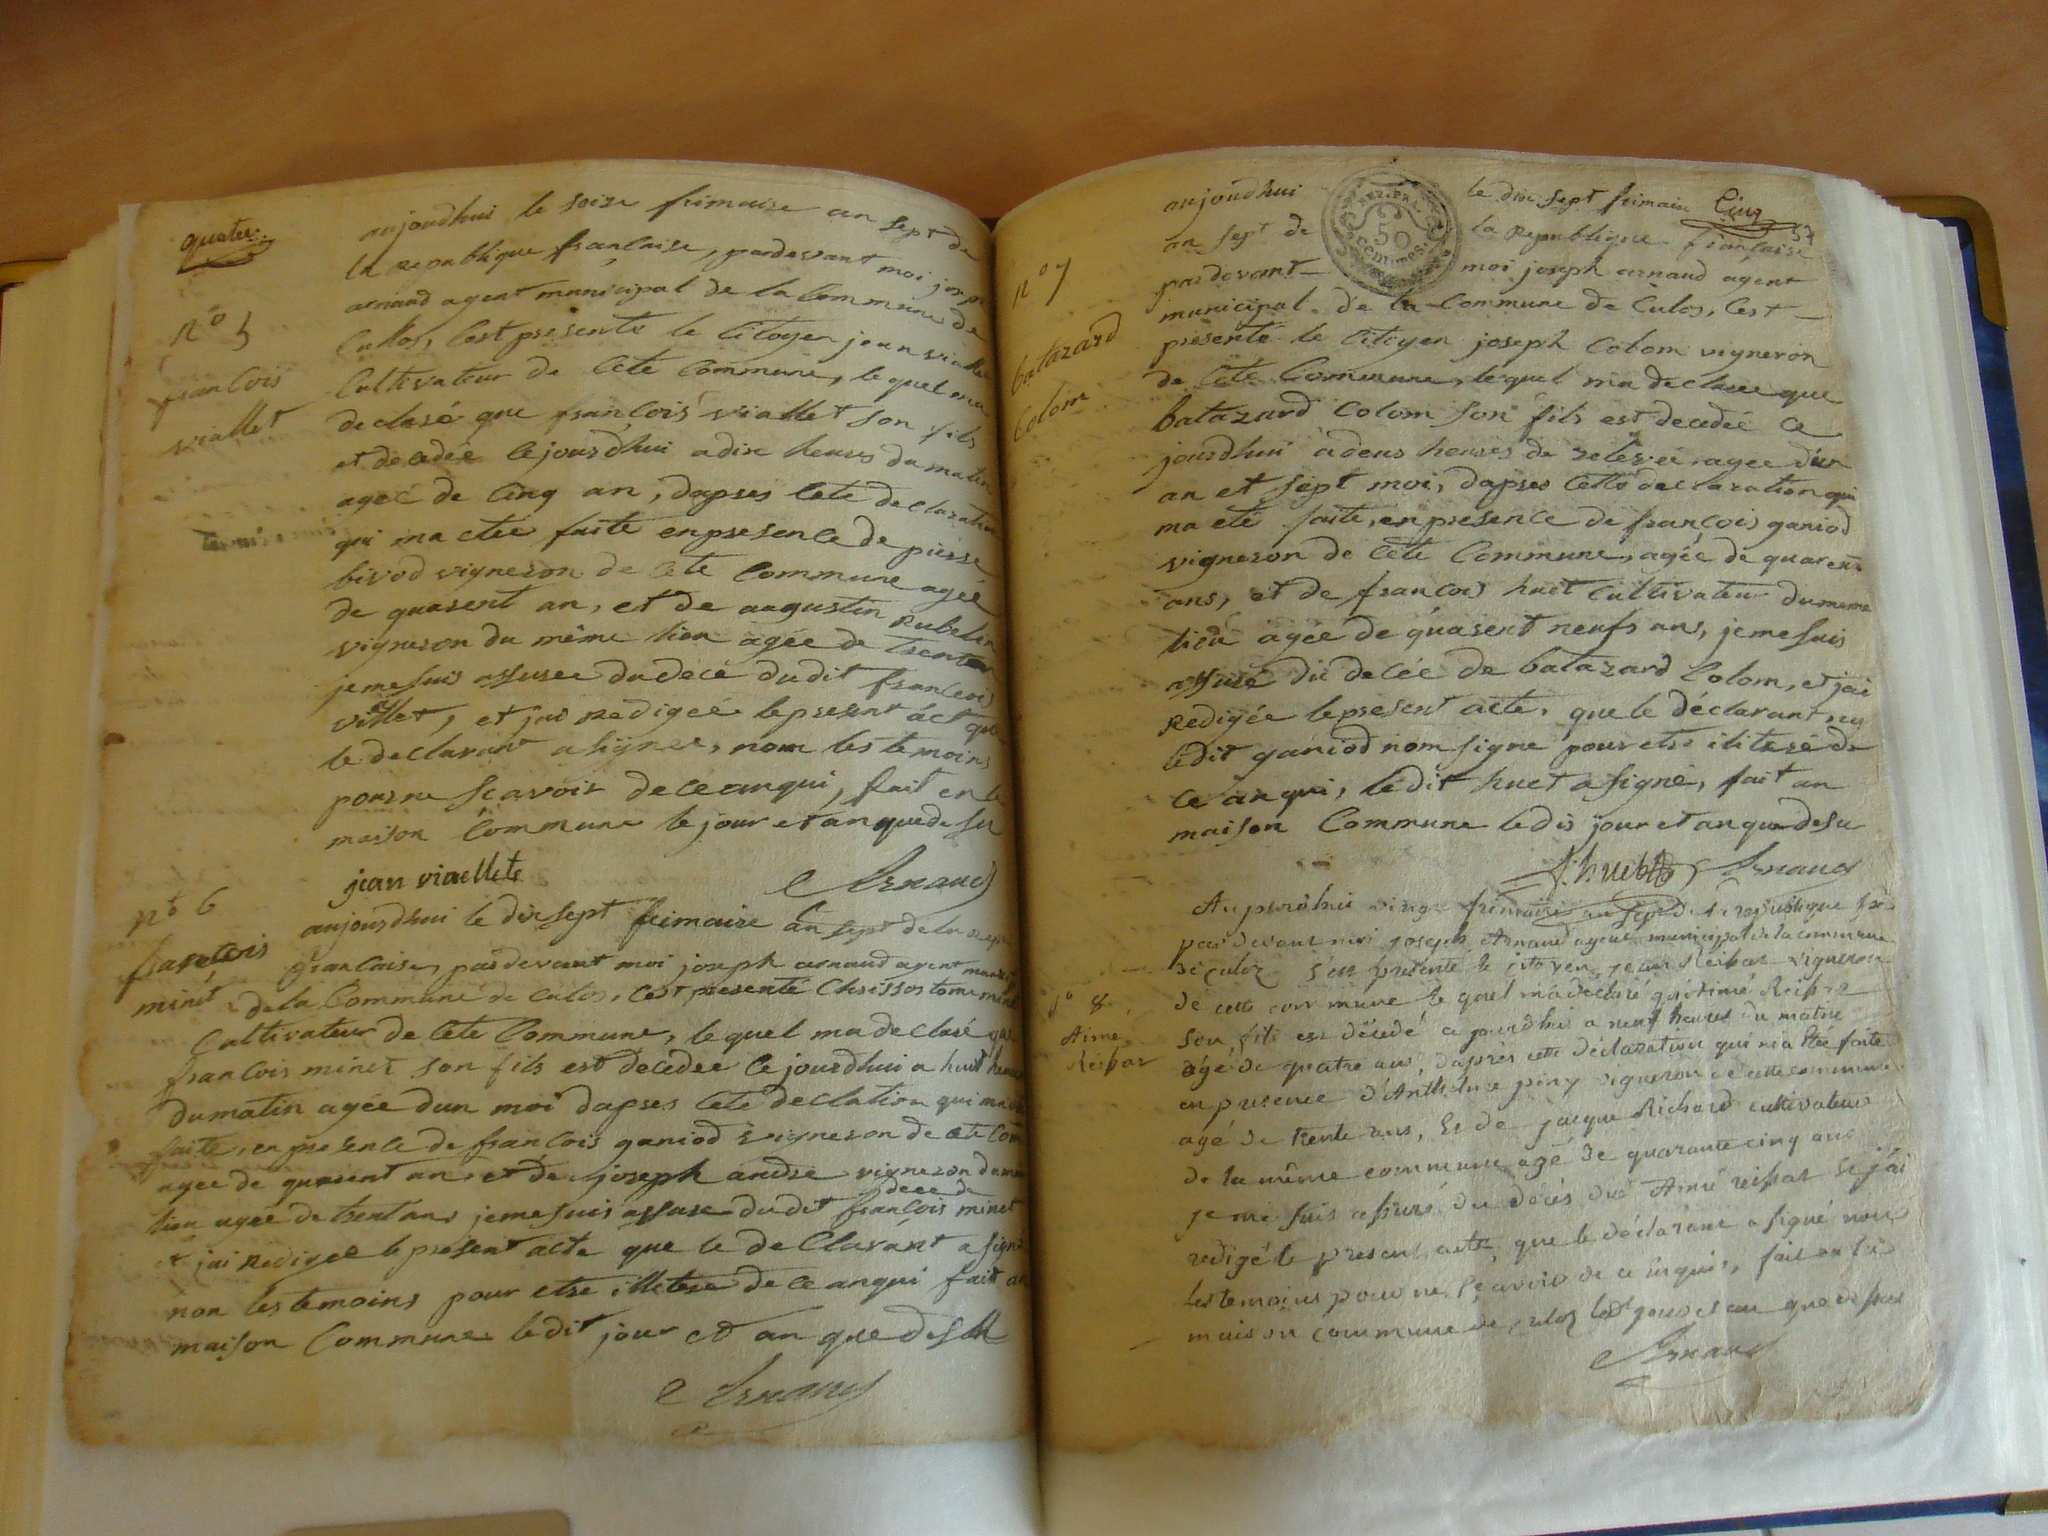 quatre
aujourdhui le seize frimaire an sept de
la republique francaise, pardevant moi joseph
arnaud agent municipal de la Commune de
n° 5
francois
viallet
Cullos, C'est presenté le Citoyen jean viallet
Cultivateur de Cete Commune, le quel ma
declaré que francois viallet son fils
et decedée Cejourdhui a dix heures du matin
ageé de Cinq an, dapres Cete declaration
qui ma etee faite enpresence de pierre
bivod vigneron de Cete Commune agée
de quarent an, et de augustin Rubelin
vigneron du même lieu agée de trente
jemesuis assuree dudecé dudit francois
viallet, et jai Redigée lepresent act que
le declarant a signee, nom les temoins
pourne sçavoir deceanqui, fait en la
maison Commune le jour et an quede su
jean viallete
Arnaud
n° 6
francois
minet
aujourdhui le dix sept frimaire an sept dela repu
francaise, pardevant moi joseph arnaud agent muni
de la Commune de Culos, Cest presenté Chrissostome minet
Cultivateur de Cete Commune, le quel ma declaré que
francois minet son fils est decedee Ce jourdhui a huit heures
dumatin agée dun moi dapres Cete declation qui ma
faite, en presence de francois ganiod vigneron de Cete Com
agee de quarent an, et de joseph andre vigneron dumeme
decé de
lieu agée de trent an, jemesuis assure dudit francois minet
et jai Redigee lepresent acte que le declarant a signé
non les temoins pour etre illetere de ce anqui fait an
maison Commune ledit jour et an que desu
Arnaud
Cinq
57
aujourdhui le dix sept frimaire
an sept de la Republique francaise
50
Centimes
pardevant moi joseph arnaud agent
n° 7
batazard
Colom
municipal de la Commune de Culos, Cest
presenté le Citoyen joseph Colom vigneron
de Cete Commune, lequel ma declaree que
batazard Colom son fils est decedée Ce
jourdhui a deux heures de relevée, agee d'un
an et sept moi, dapres Cette declaration qui
ma eté faite, enpresence de françois ganiod
vigneron de Cete Commune, agée de quarente
ans, et de francois huet Cultivateur dumeme
lieu agée de quarent neufs ans, jemesuis
assuré du decée de batazard Colom, et jai
Redigée lepresent acte, que le déclarant, ny
ledit ganiod nom signe pour etre iliteré de
Ce anqui, ledit huet a signé, fait an
maison Commune ledis jour et an que desu
f. huet Arnaud
n° 8
Aimé
Reibar
Aujourdhui vingt frimaire an sept de la republique fse
par devant moi joseph Arnaud agent municipal de la commune
de culoz s'est presenté le citoyen jean Reibar vigneron
de cette commune le quel m'a declaré qu'aimé Reibar
son fils est décédé ce jourdhui a neuf heures du matin
âgé de quatre ans, d'après cette déclaration qui m'a été faite
en presence d'Anthelme piny vigneron de cette commune
agé de trente ans, et de jacque Richard cultivateur
de la même commune agé de quarante cinq ans
je me suis assuré du décès dud Aimé reibar et j'ai
redigé le present acte, que le déclarant a signé non
les temoins pour ne sçavoir de ce enquis, fait en la
maison commune de culoz led jour et an que dessus
Arnaud